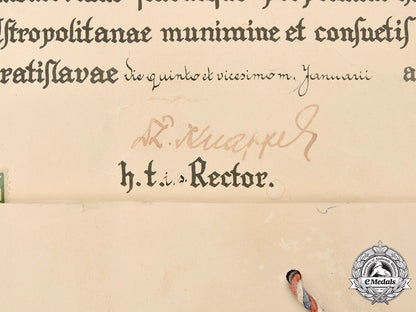 stropolitanae munimine et consuetis
ratislavae die quinto et vicesimo m. Januarii a
h. t. i. s. Rector.
eMedals